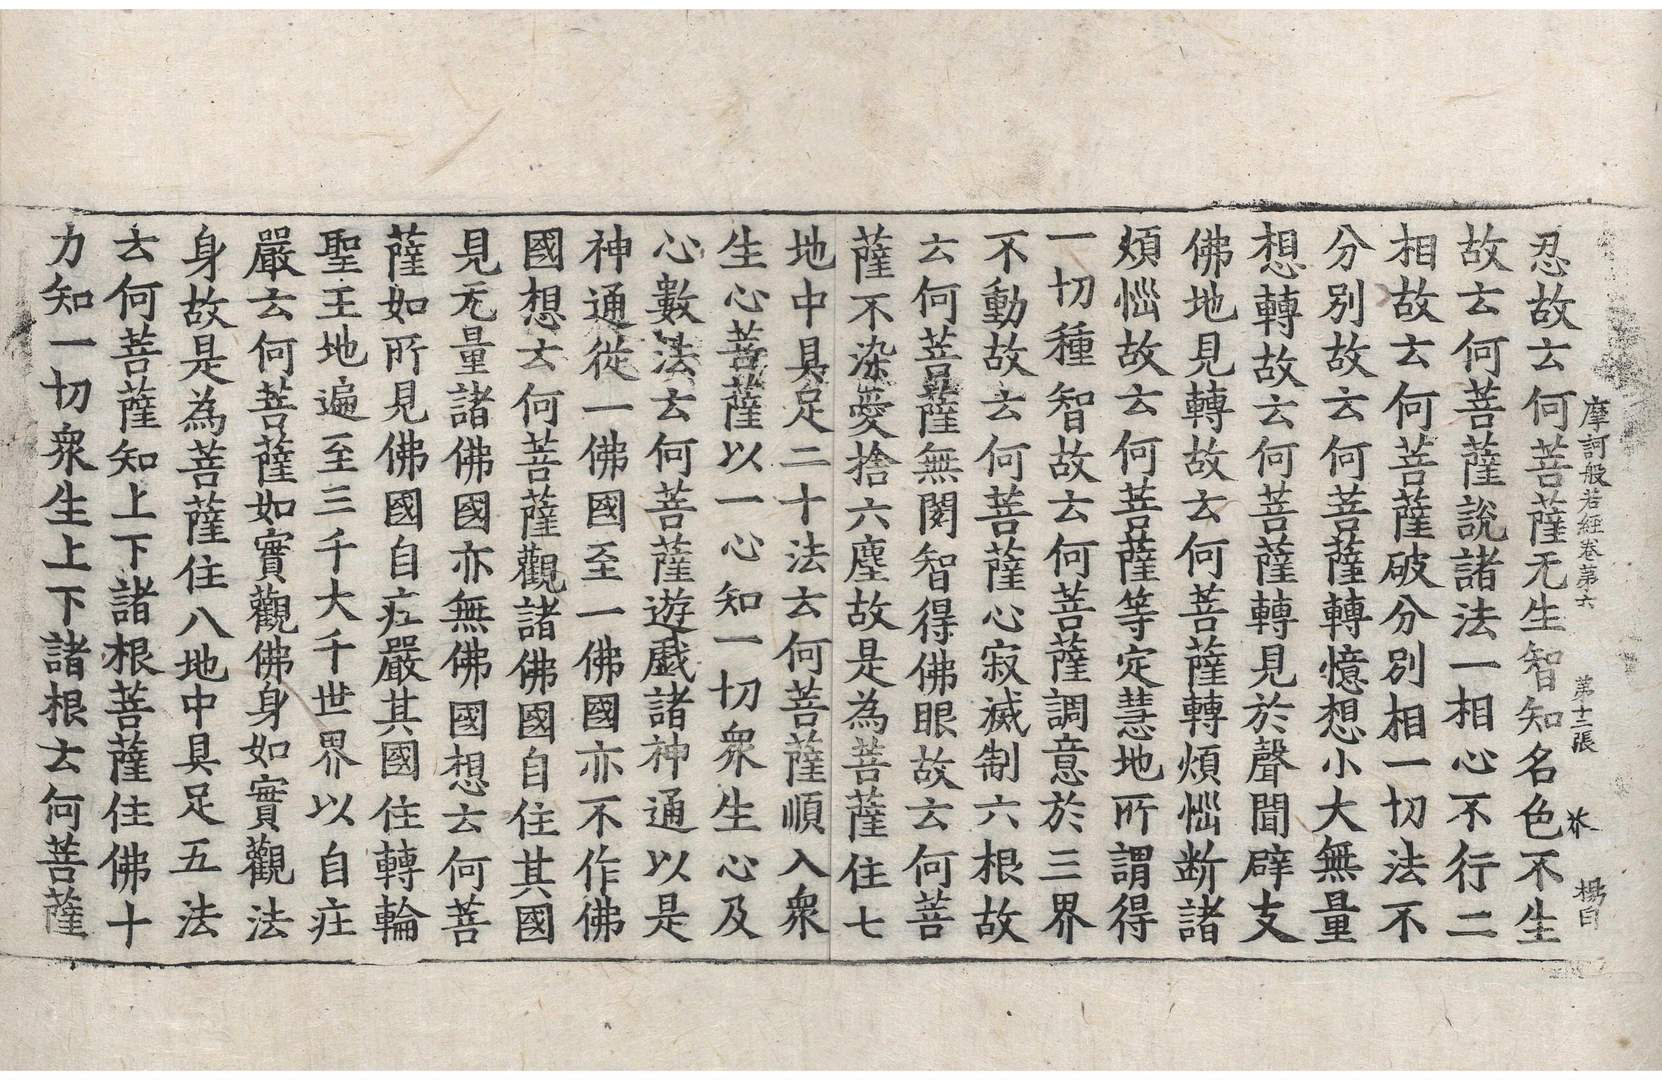 摩訶般若經卷第六　第十二張　柰　楊白
忍故云何菩薩无生智知名色不生
故云何菩薩說諸法一相心不行二
相故云何菩薩破分別相一切法不
分別故云何菩薩轉憶想小大無量
想轉故云何菩薩轉見於聲聞辟支
佛地見轉故云何菩薩轉煩惱断諸
煩惱故云何菩薩等定慧地所謂得
一切種智故云何菩薩調意於三界
不動故云何菩薩心寂滅制六根故
云何菩薩無閡智得佛眼故云何菩
薩不染愛捨六塵故是為菩薩住七
地中具足二十法云何菩薩順入衆
生心菩薩以一心知一切衆生心及
心數法云何菩薩遊戲諸神通以是
神通從一佛國至一佛國亦不作佛
國想云何菩薩觀諸佛國自住其國
見无量諸佛國亦無佛國想云何菩
薩如所見佛國自庄嚴其國住轉輪
聖王地遍至三千大千世界以自庄
嚴云何菩薩如實觀佛身如實觀法
身故是為菩薩住八地中具足五法
云何菩薩知上下諸根菩薩住佛十
力知一切衆生上下諸根云何菩薩